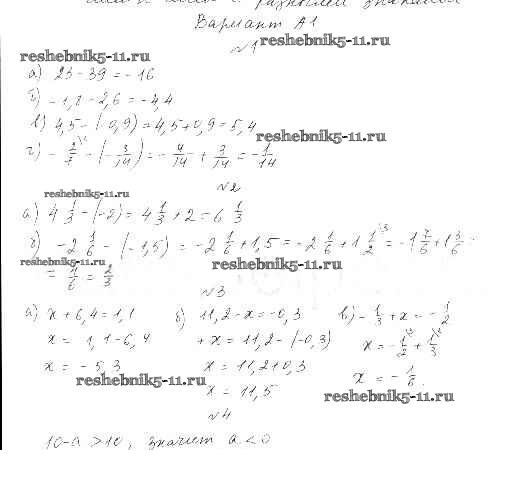 Вариант А1
№1 reshebnik5-11.ru
reshebnik5-11.ru
а) 23 - 39 = -16
б) -1,8 - 2,6 = -4,4
в) 4,5 - (-0,9) = 4,5 + 0,9 = 5,4
reshebnik5-11.ru
г) -2/7 - (-3/14) = -4/14 + 3/14 = -1/14
№2
reshebnik5-11.ru
а) 4 1/3 - (-2) = 4 1/3 + 2 = 6 1/3
б) -2 1/6 - (-1,5) = -2 1/6 + 1,5 = -2 1/6 + 1 1/2 = -1 7/6 + 1 3/6 =
reshebnik5-11.ru reshebnik5-11.ru
= 4/6 = 2/3
№3
а) x + 6,4 = 1,1 б) 11,2 - x = -0,3 в) -1/3 + x = -1/2
x = 1,1 - 6,4 + x = 11,2 - (-0,3) x = -1/2 + 1/3
x = -5,3 x = 11,2 + 0,3 x = -1/6.
reshebnik5-11.ru
x = 11,5 reshebnik5-11.ru
№4
10 - a > 10, значит a < 0